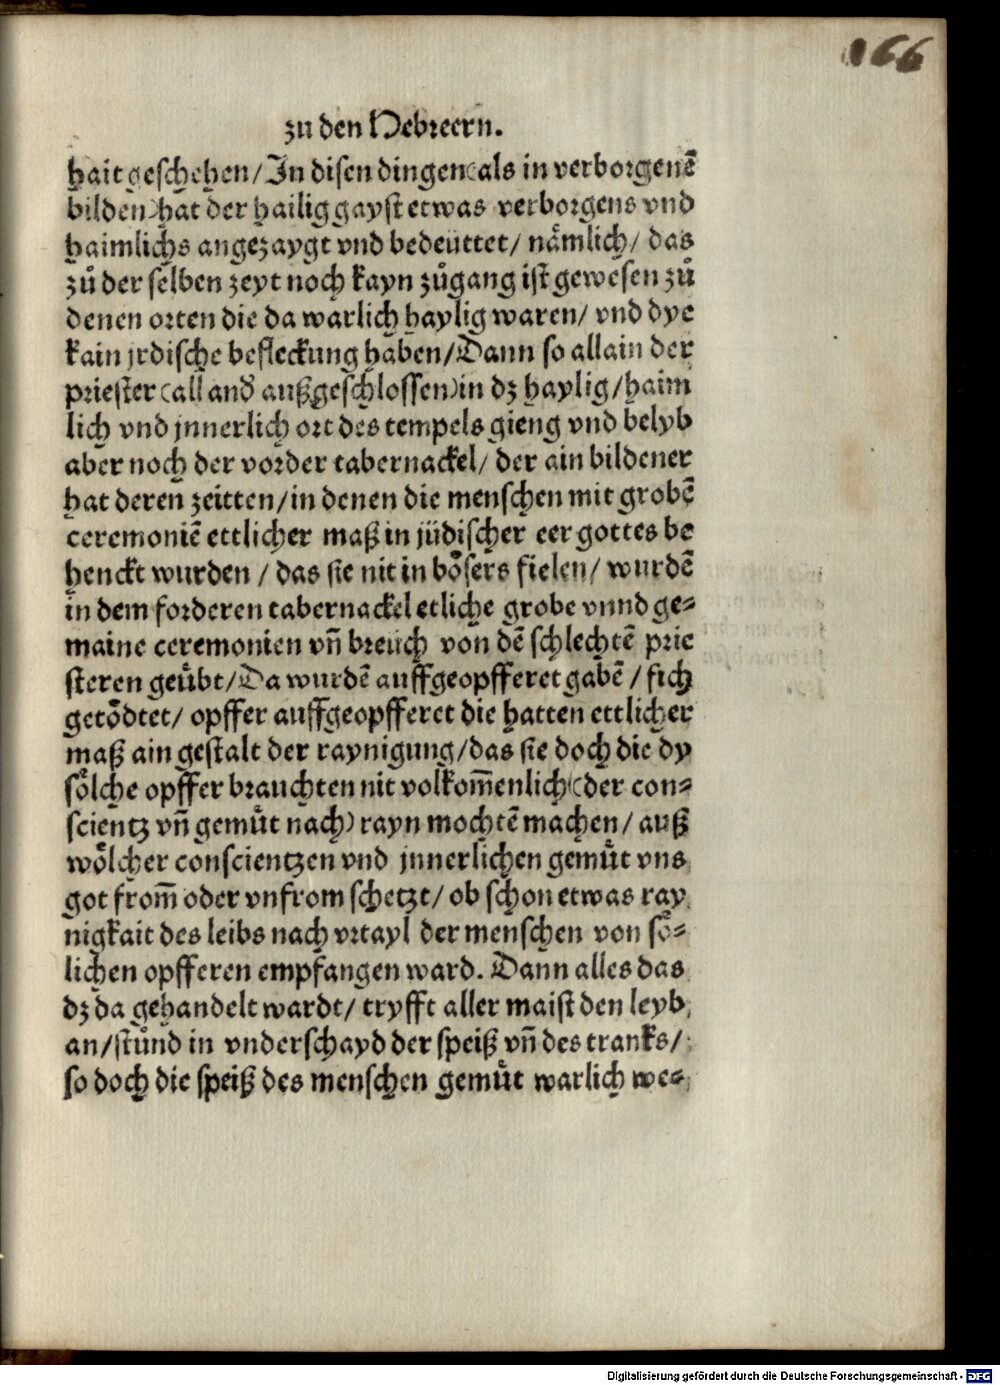 166
zu den Hebreern.
hait geschehen/ In disen dingen (als in verborgenē
bilden) hat der hailig gayst etwas verborgens vnd
haimlichs angezaygt vnd bedeuttet/ nämlich/ das
zů der selben zeyt noch kayn zůgang ist gewesen zů
denen orten die da warlich haylig waren/ vnd dye
kain jrdische befleckung haben/ Dann so allain der
priester (all and außgeschlossen) in dz haylig/ haim
lich vnd jnnerlich ort des tempels gieng vnd belyb
aber noch der vorder tabernackel/ der ain bildener
hat deren zeitten/ in denen die menschen mit grobē
ceremoniē ettlicher maß in jüdischer eer gottes be
henckt wurden / das sie nit in bösers fielen/ wurdē
in dem forderen tabernackel etliche grobe vnnd ge-
maine ceremonien vn̄ breuch von dē schlechtē prie
steren geübt/ Da wurdē auffgeopfferet gabē / fich
getödtet/ opffer auffgeopfferet die hatten ettlicher
maß ain gestalt der raynigung/ das sie doch die dy
sölche opffer brauchten nit volkom̄enlich (der con-
scientz vn̄ gemüt nach) rayn mochtē machen/ auß
wölcher conscientzen vnd jnnerlichen gemüt vns
got from̄ oder vnfrom schetzt/ ob schon etwas ray
nigkait des leibs nach vrtayl der menschen von sö-
lichen opfferen empfangen ward. Dann alles das
dz da gehandelt wardt/ tryfft aller maist den leyb
an/ stůnd in vnderschayd der speiß vn̄ des tranks/
so doch die speiß des menschen gemüt warlich we-
Digitalisierung gefördert durch die Deutsche Forschungsgemeinschaft - DFG